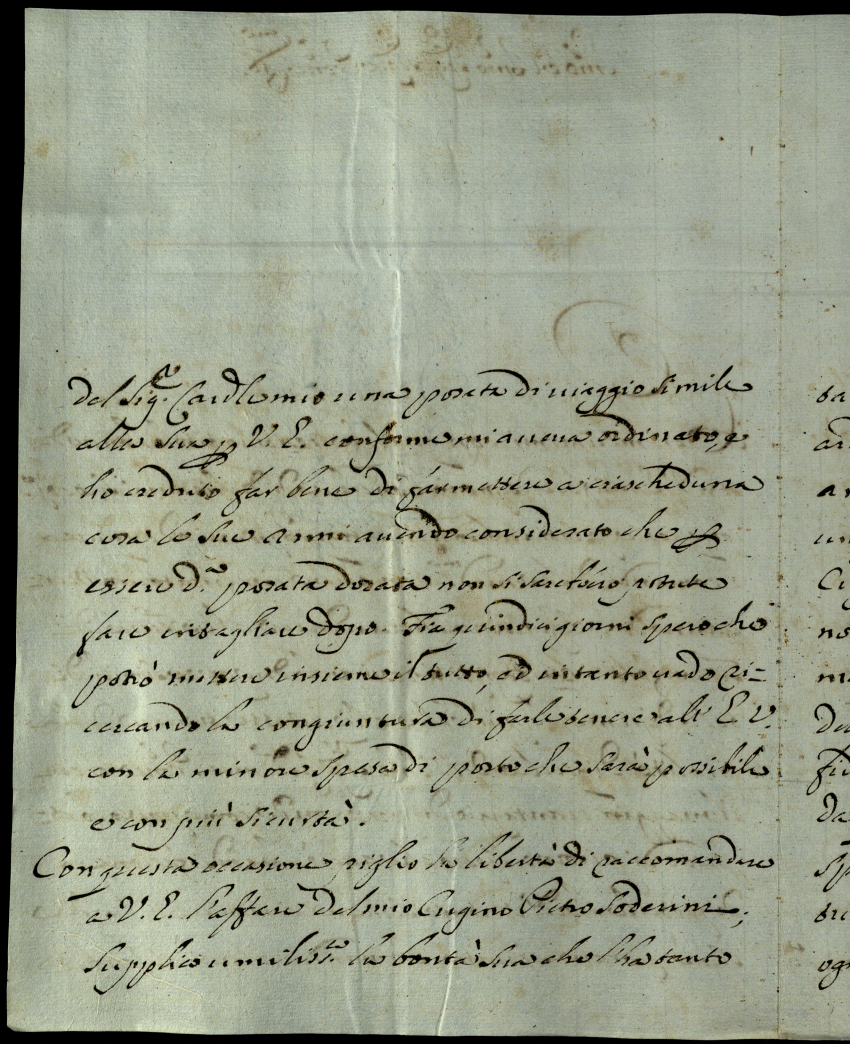 del Sig.r Cardle mio una posata di viaggio simile
alla sua p V. E. conforme mi aveva ordinato, e
ho creduto far bene di far mettere a ciascheduna
cosa le sue armi avendo considerato che p
essere d.a posata dorata non si sarebbero potute
fare intagliare dopo. Fra quindici giorni spero che
potrò mettere insieme il tutto, ed intanto vado ri=
cercando la congiuntura di farle tenere all' E. V.
con la minore spesa di porto che sarà possibile
e con più sicurtà.
Con questa occasione piglio la libertà di raccomandare
a V. E. l'affare del mio Cugino Pietro Soderini;
supplico umiliss.te la bontà sua che l'ha tanto